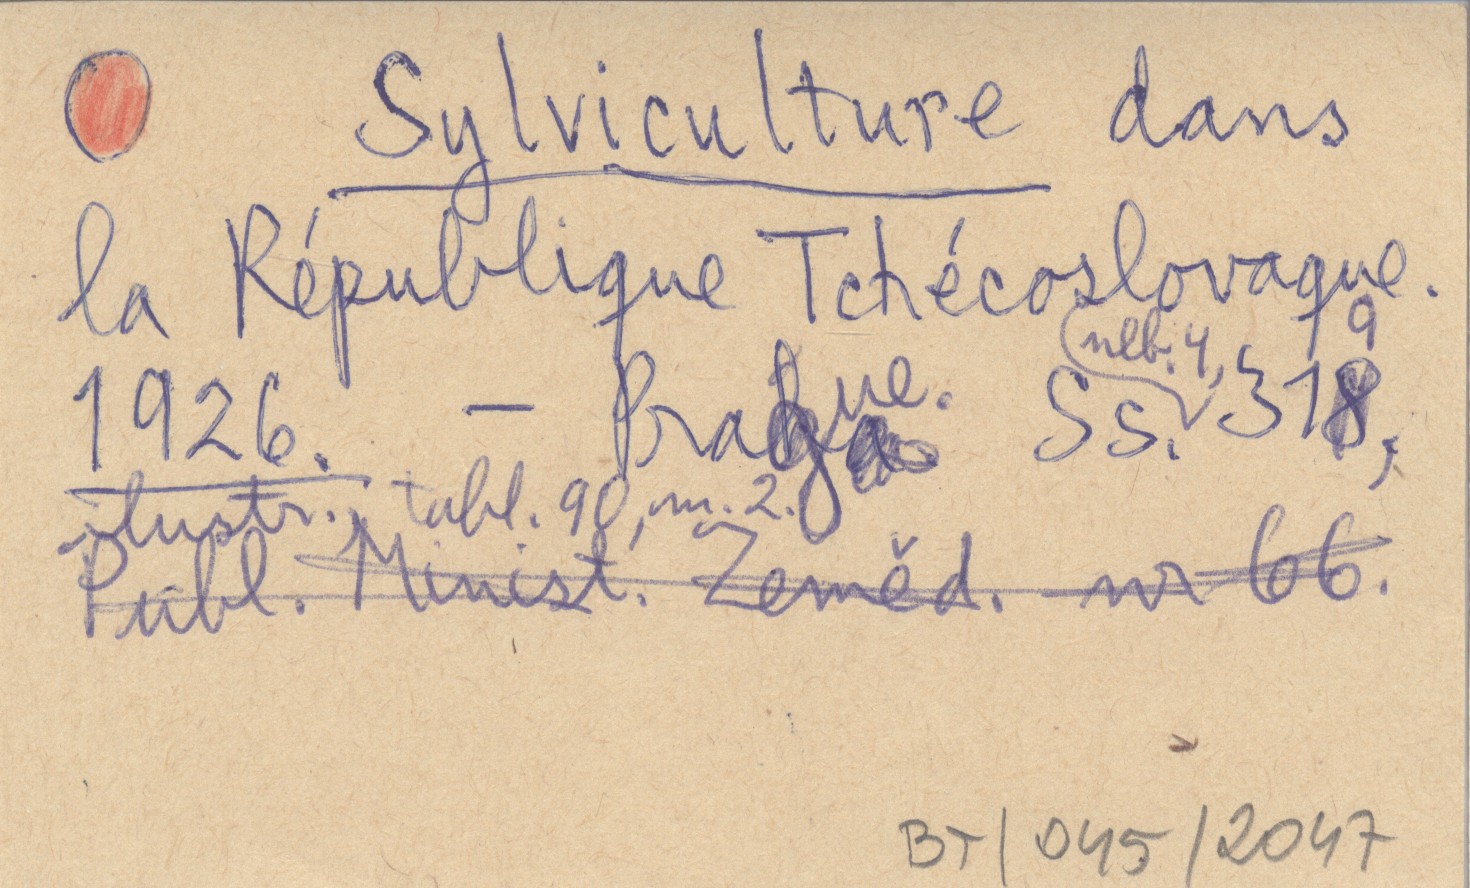 Sylviculture dans
la République Tchécoslovaque.
(nlb. 4,
1926. — Prague. Ss. 319,
ilustr., tabl. 90, m. 2.
Publ. Minist. Zeměd. nr 66.
BT/045/2047